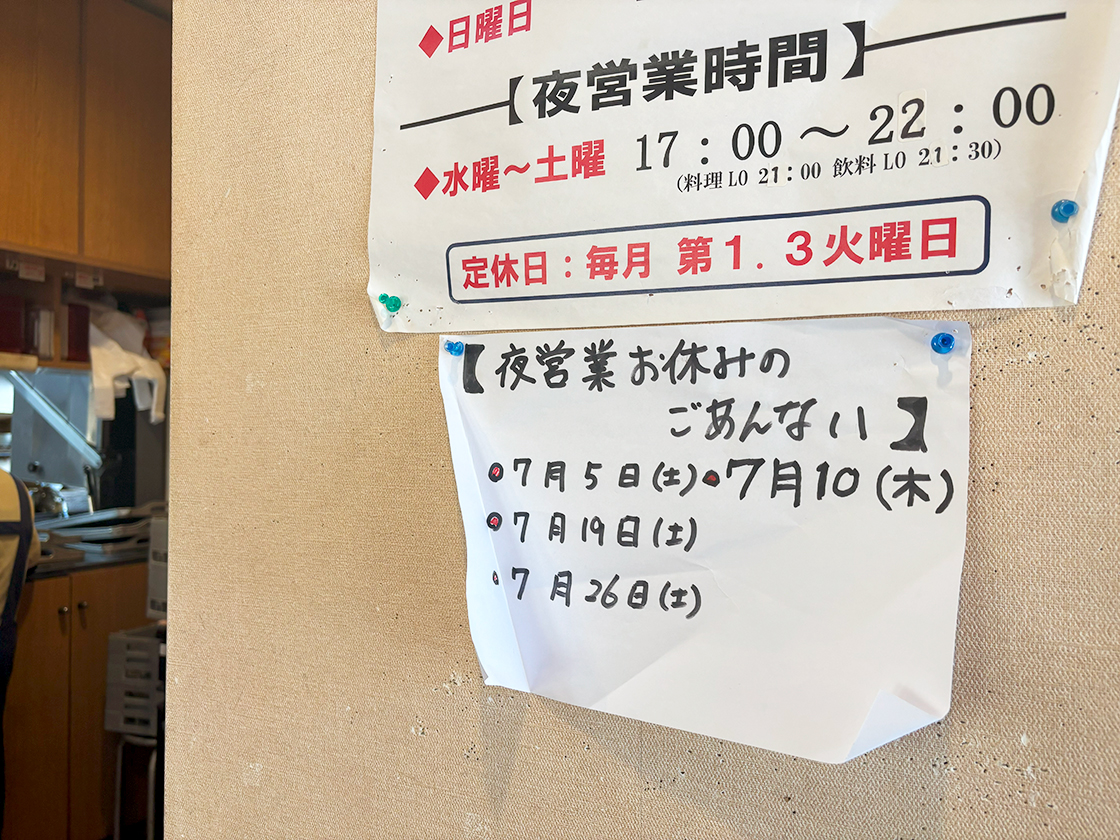 ◆日曜日
【夜営業時間】
◆水曜～土曜 17：00～22：00
(料理LO 21：00 飲料LO 21：30)
定休日：毎月 第1．3火曜日
【夜営業お休みの
ごあんない】
・7月5日(土)・7月10(木)
・7月19日(土)
・7月26日(土)